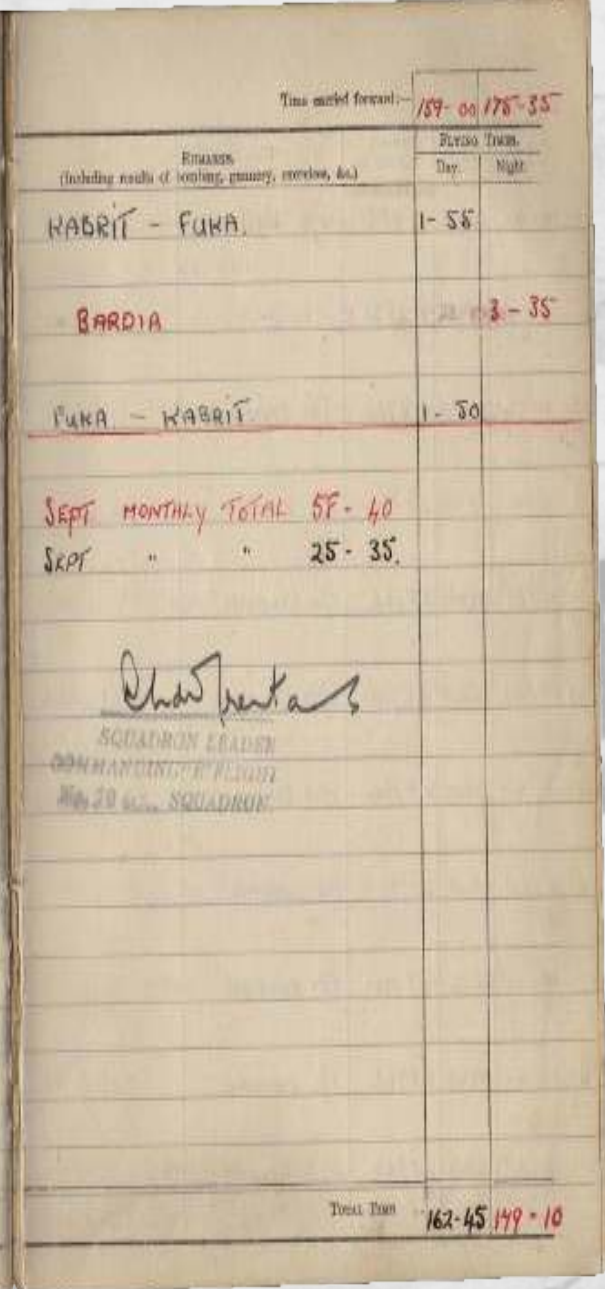 Time carried forward:— 159-00 175-35
FLYING TIMES.
REMARKS
(Including results of bombing, gunnery, exercises, &c.) Day. Night.
KABRIT - FUKA. 1-55
BARDIA 3-35
FUKA - KABRIT 1-50
SEPT MONTHLY TOTAL 58-40
SEPT " " 25-35.
SQUADRON LEADER
COMMANDING FLIGHT
No. SQUADRON.
TOTAL TIME 162-45 179-10